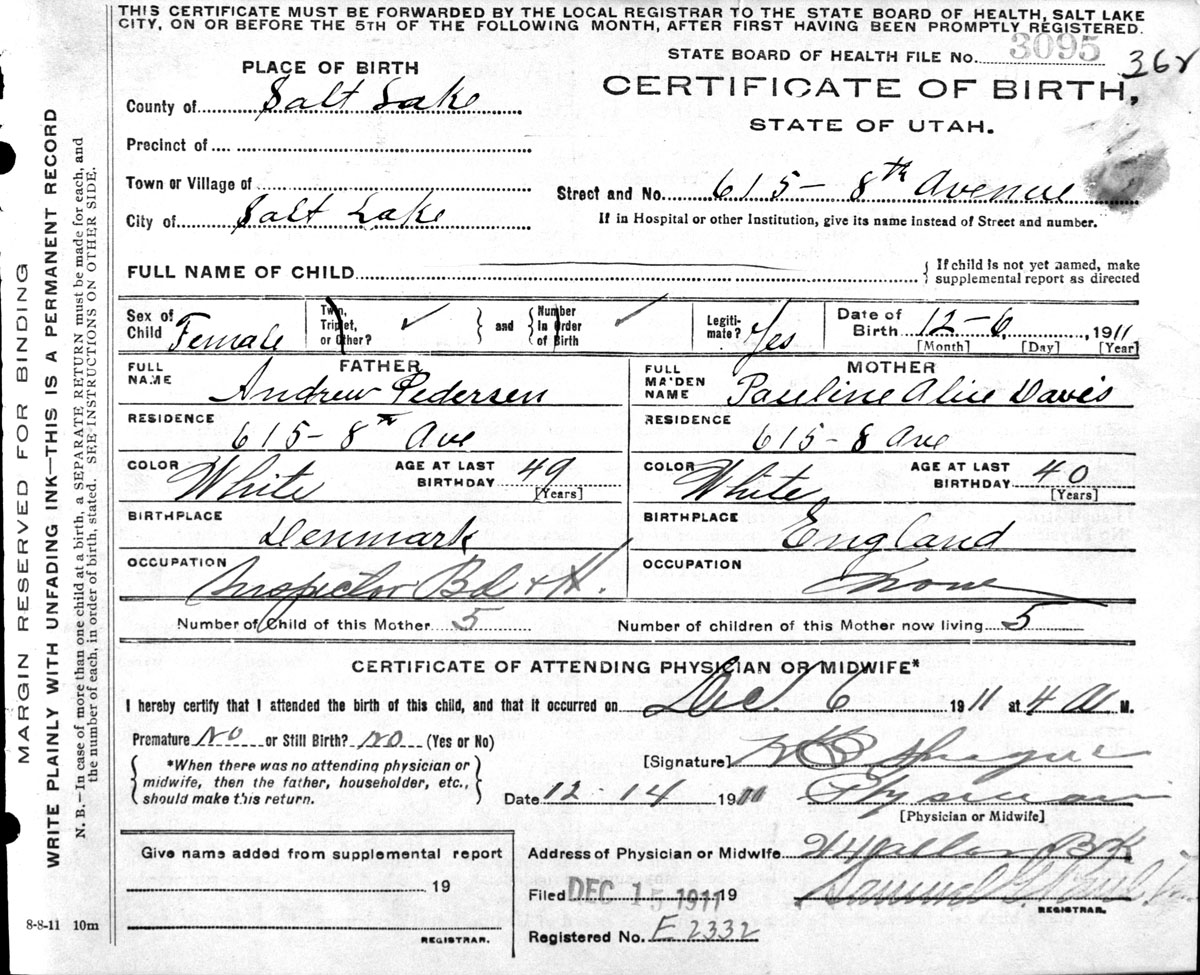 THIS CERTIFICATE MUST BE FORWARDED BY THE LOCAL REGISTRAR TO THE STATE BOARD OF HEALTH, SALT LAKE
CITY, ON OR BEFORE THE 5TH OF THE FOLLOWING MONTH, AFTER FIRST HAVING BEEN PROMPTLY REGISTERED.
STATE BOARD OF HEALTH FILE No. 3095
362
PLACE OF BIRTH
CERTIFICATE OF BIRTH,
STATE OF UTAH.
County of Salt Lake
Precinct of
Town or Village of
Street and No. 615 - 8th Avenue
City of Salt Lake
If in Hospital or other Institution, give its name instead of Street and number.
FULL NAME OF CHILD
{ If child is not yet named, make
supplemental report as directed
Sex of Child Female
Twin, Triplet, or Other? ✓ } and { Number In Order of Birth ✓
Legiti-mate? Yes
Date of Birth 12-6, 1911
[Month] [Day] [Year]
FATHER
FULL NAME Andrew Pedersen
MOTHER
FULL MAIDEN NAME Pauline Alice Davis
RESIDENCE 615 - 8th Ave
RESIDENCE 615 - 8 Ave
COLOR White AGE AT LAST BIRTHDAY 49 [Years]
COLOR White AGE AT LAST BIRTHDAY 40 [Years]
BIRTHPLACE Denmark
BIRTHPLACE England
OCCUPATION Inspector Bd + H.
OCCUPATION None
Number of Child of this Mother 5
Number of children of this Mother now living 5
CERTIFICATE OF ATTENDING PHYSICIAN OR MIDWIFE*
I hereby certify that I attended the birth of this child, and that it occurred on Dec. 6 1911 at 4 A M.
Premature No or Still Birth? No (Yes or No)
[Signature]
{ *When there was no attending physician or
midwife, then the father, householder, etc.,
should make this return. }
Date 12 - 14 1911 Physician
[Physician or Midwife]
Give name added from supplemental report
19
REGISTRAR.
Address of Physician or Midwife
Filed DEC 15 1911 19 Samuel G. Paul
REGISTRAR.
Registered No. F 2332
8-8-11 10m
MARGIN RESERVED FOR BINDING
WRITE PLAINLY WITH UNFADING INK—THIS IS A PERMANENT RECORD
N. B.—In case of more than one child at a birth, a SEPARATE RETURN must be made for each, and
the number of each, in order of birth, stated. SEE INSTRUCTIONS ON OTHER SIDE.